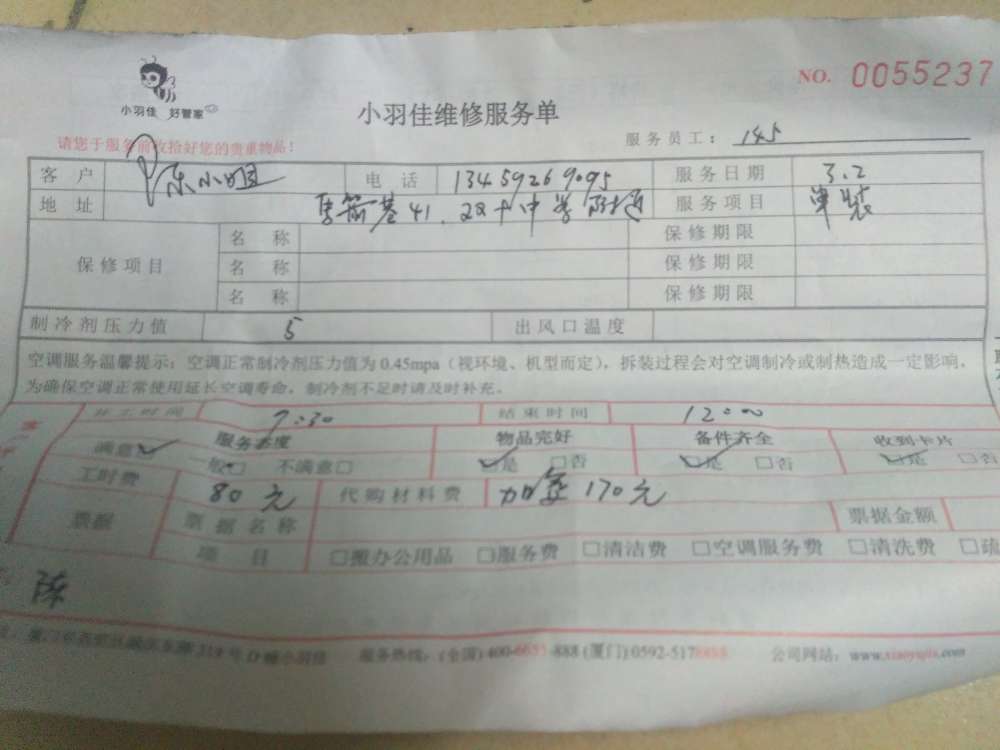 NO. 0055237
小羽佳 好管家
小羽佳维修服务单
请您于服务前收拾好您的贵重物品！ 服务员工：145
客户 陈小姐 电话 13459269095 服务日期 3.2
地址 41. 二十中学附近 服务项目 单装
保修项目 名称 保修期限
名称 保修期限
名称 保修期限
制冷剂压力值 5 出风口温度
空调服务温馨提示：空调正常制冷剂压力值为0.45mpa（视环境、机型而定），拆装过程会对空调制冷或制热造成一定影响，
为确保空调正常使用延长空调寿命，制冷剂不足时请及时补充。
开工时间 9:30 结束时间 12:00
服务态度 物品完好 备件齐全 收到卡片
满意✓ 一般□ 不满意□ ☑是 □否 ☑是 □否 ☑是 □否
工时费 80元 代购材料费 加氟170元
票据 票据名称 票据金额
项目 □搬办公用品 □服务费 □清洁费 □空调服务费 □清洗费 □疏
陈
319号D幢小羽佳 服务热线：(全国)400-6655-888 (厦门)0592-517 公司网站：www.xiaoyujia.com